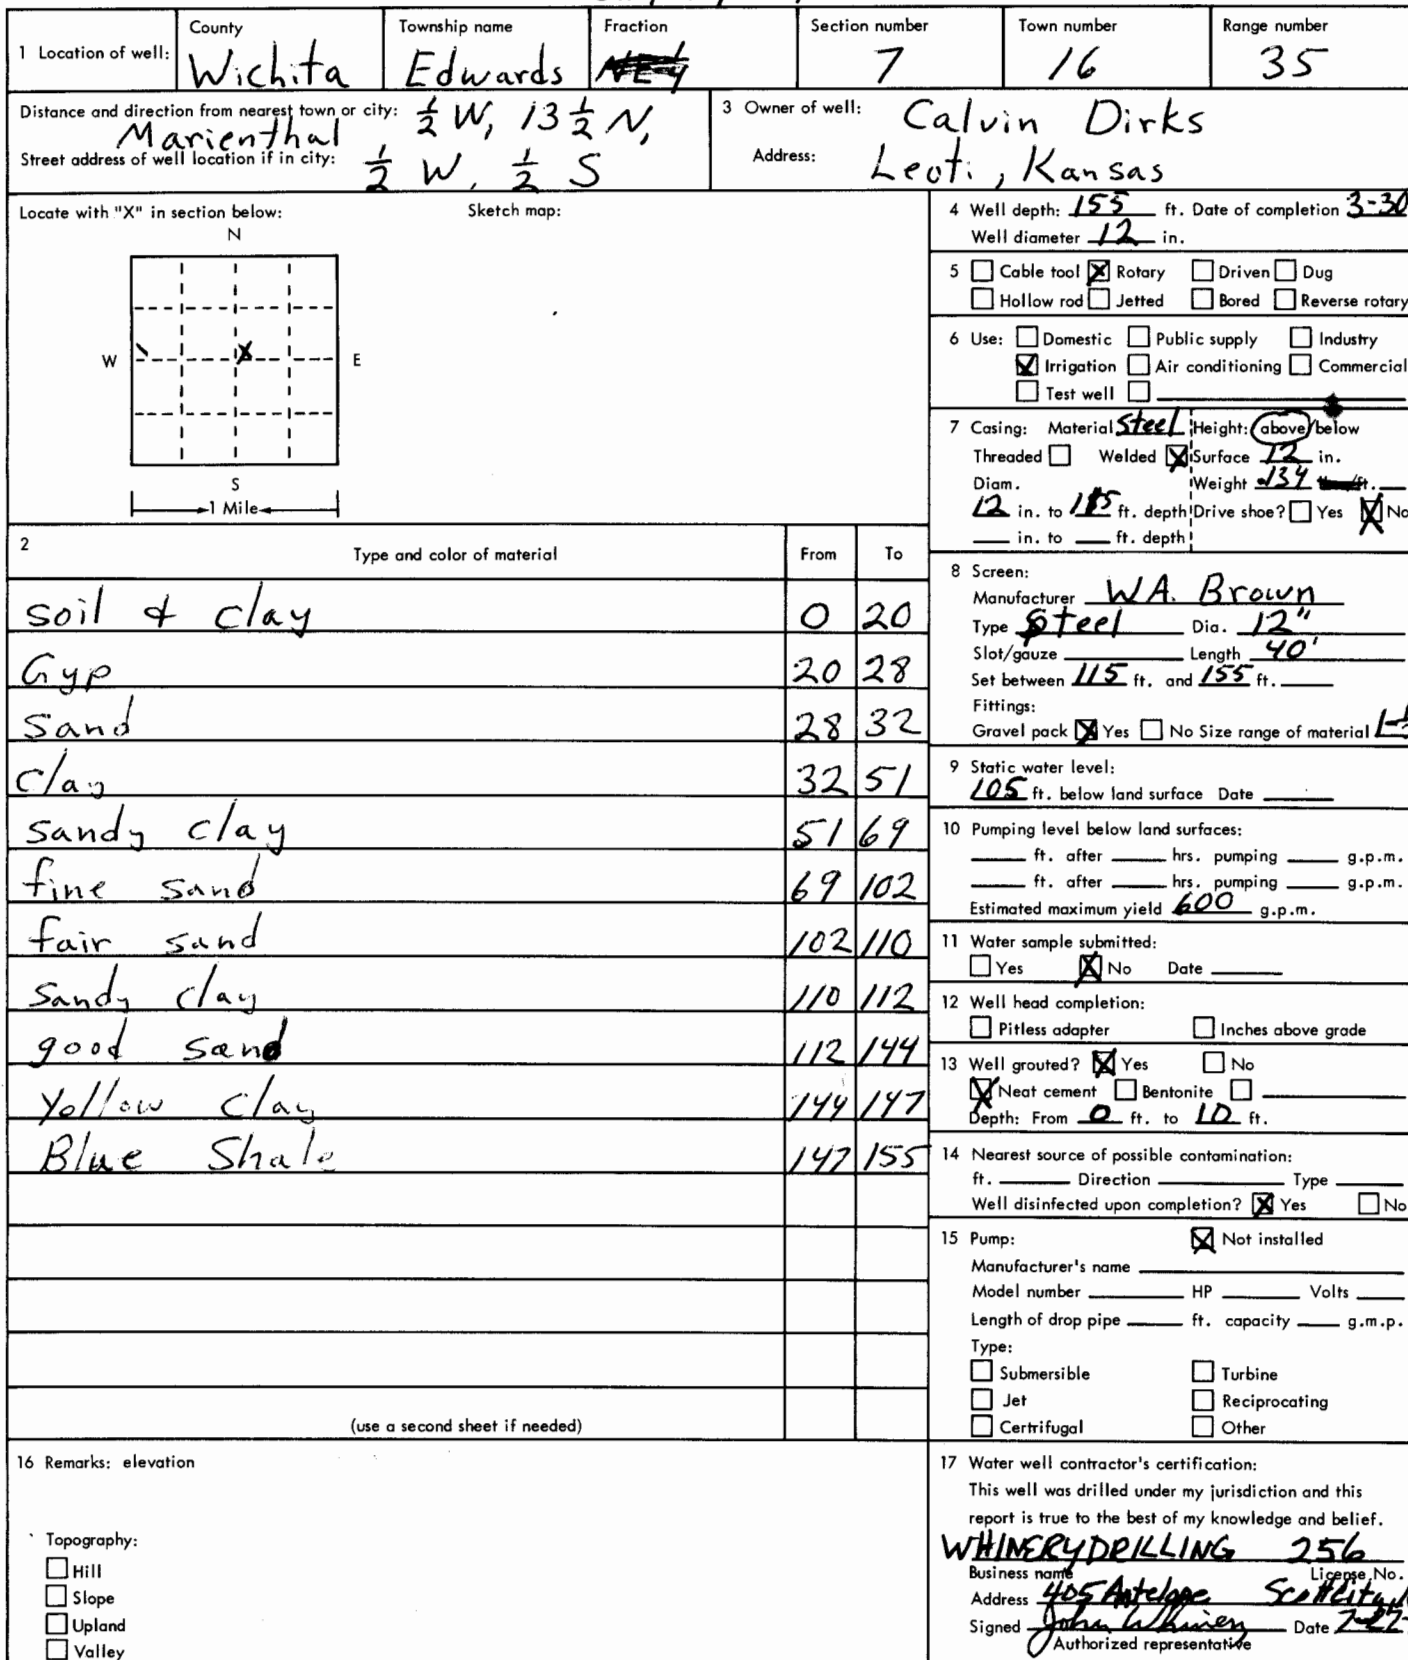 County Township name Fraction Section number Town number Range number
1 Location of well: Wichita Edwards 7 16 35
Distance and direction from nearest town or city: 1/2 W, 13 1/2 N,
Marienthal
Street address of well location if in city: 1/2 W, 1/2 S
3 Owner of well: Calvin Dirks
Address: Leoti, Kansas
Locate with "X" in section below: Sketch map:
N
W X E
S
1 Mile
2 Type and color of material From To
soil & clay 0 20
Gyp 20 28
Sand 28 32
Clay 32 51
sandy clay 51 69
fine sand 69 102
fair sand 102 110
Sandy clay 110 112
good sand 112 144
Yellow Clay 144 147
Blue Shale 147 155
(use a second sheet if needed)
16 Remarks: elevation
Topography:
Hill
Slope
Upland
Valley
4 Well depth: 155 ft. Date of completion 3-30
Well diameter 12 in.
5 Cable tool X Rotary Driven Dug
Hollow rod Jetted Bored Reverse rotary
6 Use: Domestic Public supply Industry
X Irrigation Air conditioning Commercial
Test well
7 Casing: Material Steel Height: above/below
Threaded Welded X Surface 12 in.
Diam. Weight .134 ft.
12 in. to 115 ft. depth Drive shoe? Yes X No
in. to ft. depth
8 Screen:
Manufacturer W.A. Brown
Type Steel Dia. 12"
Slot/gauze Length 40'
Set between 115 ft. and 155 ft.
Fittings:
Gravel pack X Yes No Size range of material
9 Static water level:
105 ft. below land surface Date
10 Pumping level below land surfaces:
ft. after hrs. pumping g.p.m.
ft. after hrs. pumping g.p.m.
Estimated maximum yield 600 g.p.m.
11 Water sample submitted:
Yes X No Date
12 Well head completion:
Pitless adapter Inches above grade
13 Well grouted? X Yes No
X Neat cement Bentonite
Depth: From 0 ft. to 10 ft.
14 Nearest source of possible contamination:
ft. Direction Type
Well disinfected upon completion? X Yes No
15 Pump: X Not installed
Manufacturer's name
Model number HP Volts
Length of drop pipe ft. capacity g.m.p.
Type:
Submersible Turbine
Jet Reciprocating
Certrifugal Other
17 Water well contractor's certification:
This well was drilled under my jurisdiction and this
report is true to the best of my knowledge and belief.
WHINERY DRILLING 256
Business name License No.
Address 405 Antelope Scott City,
Signed John Whinery Date
Authorized representative